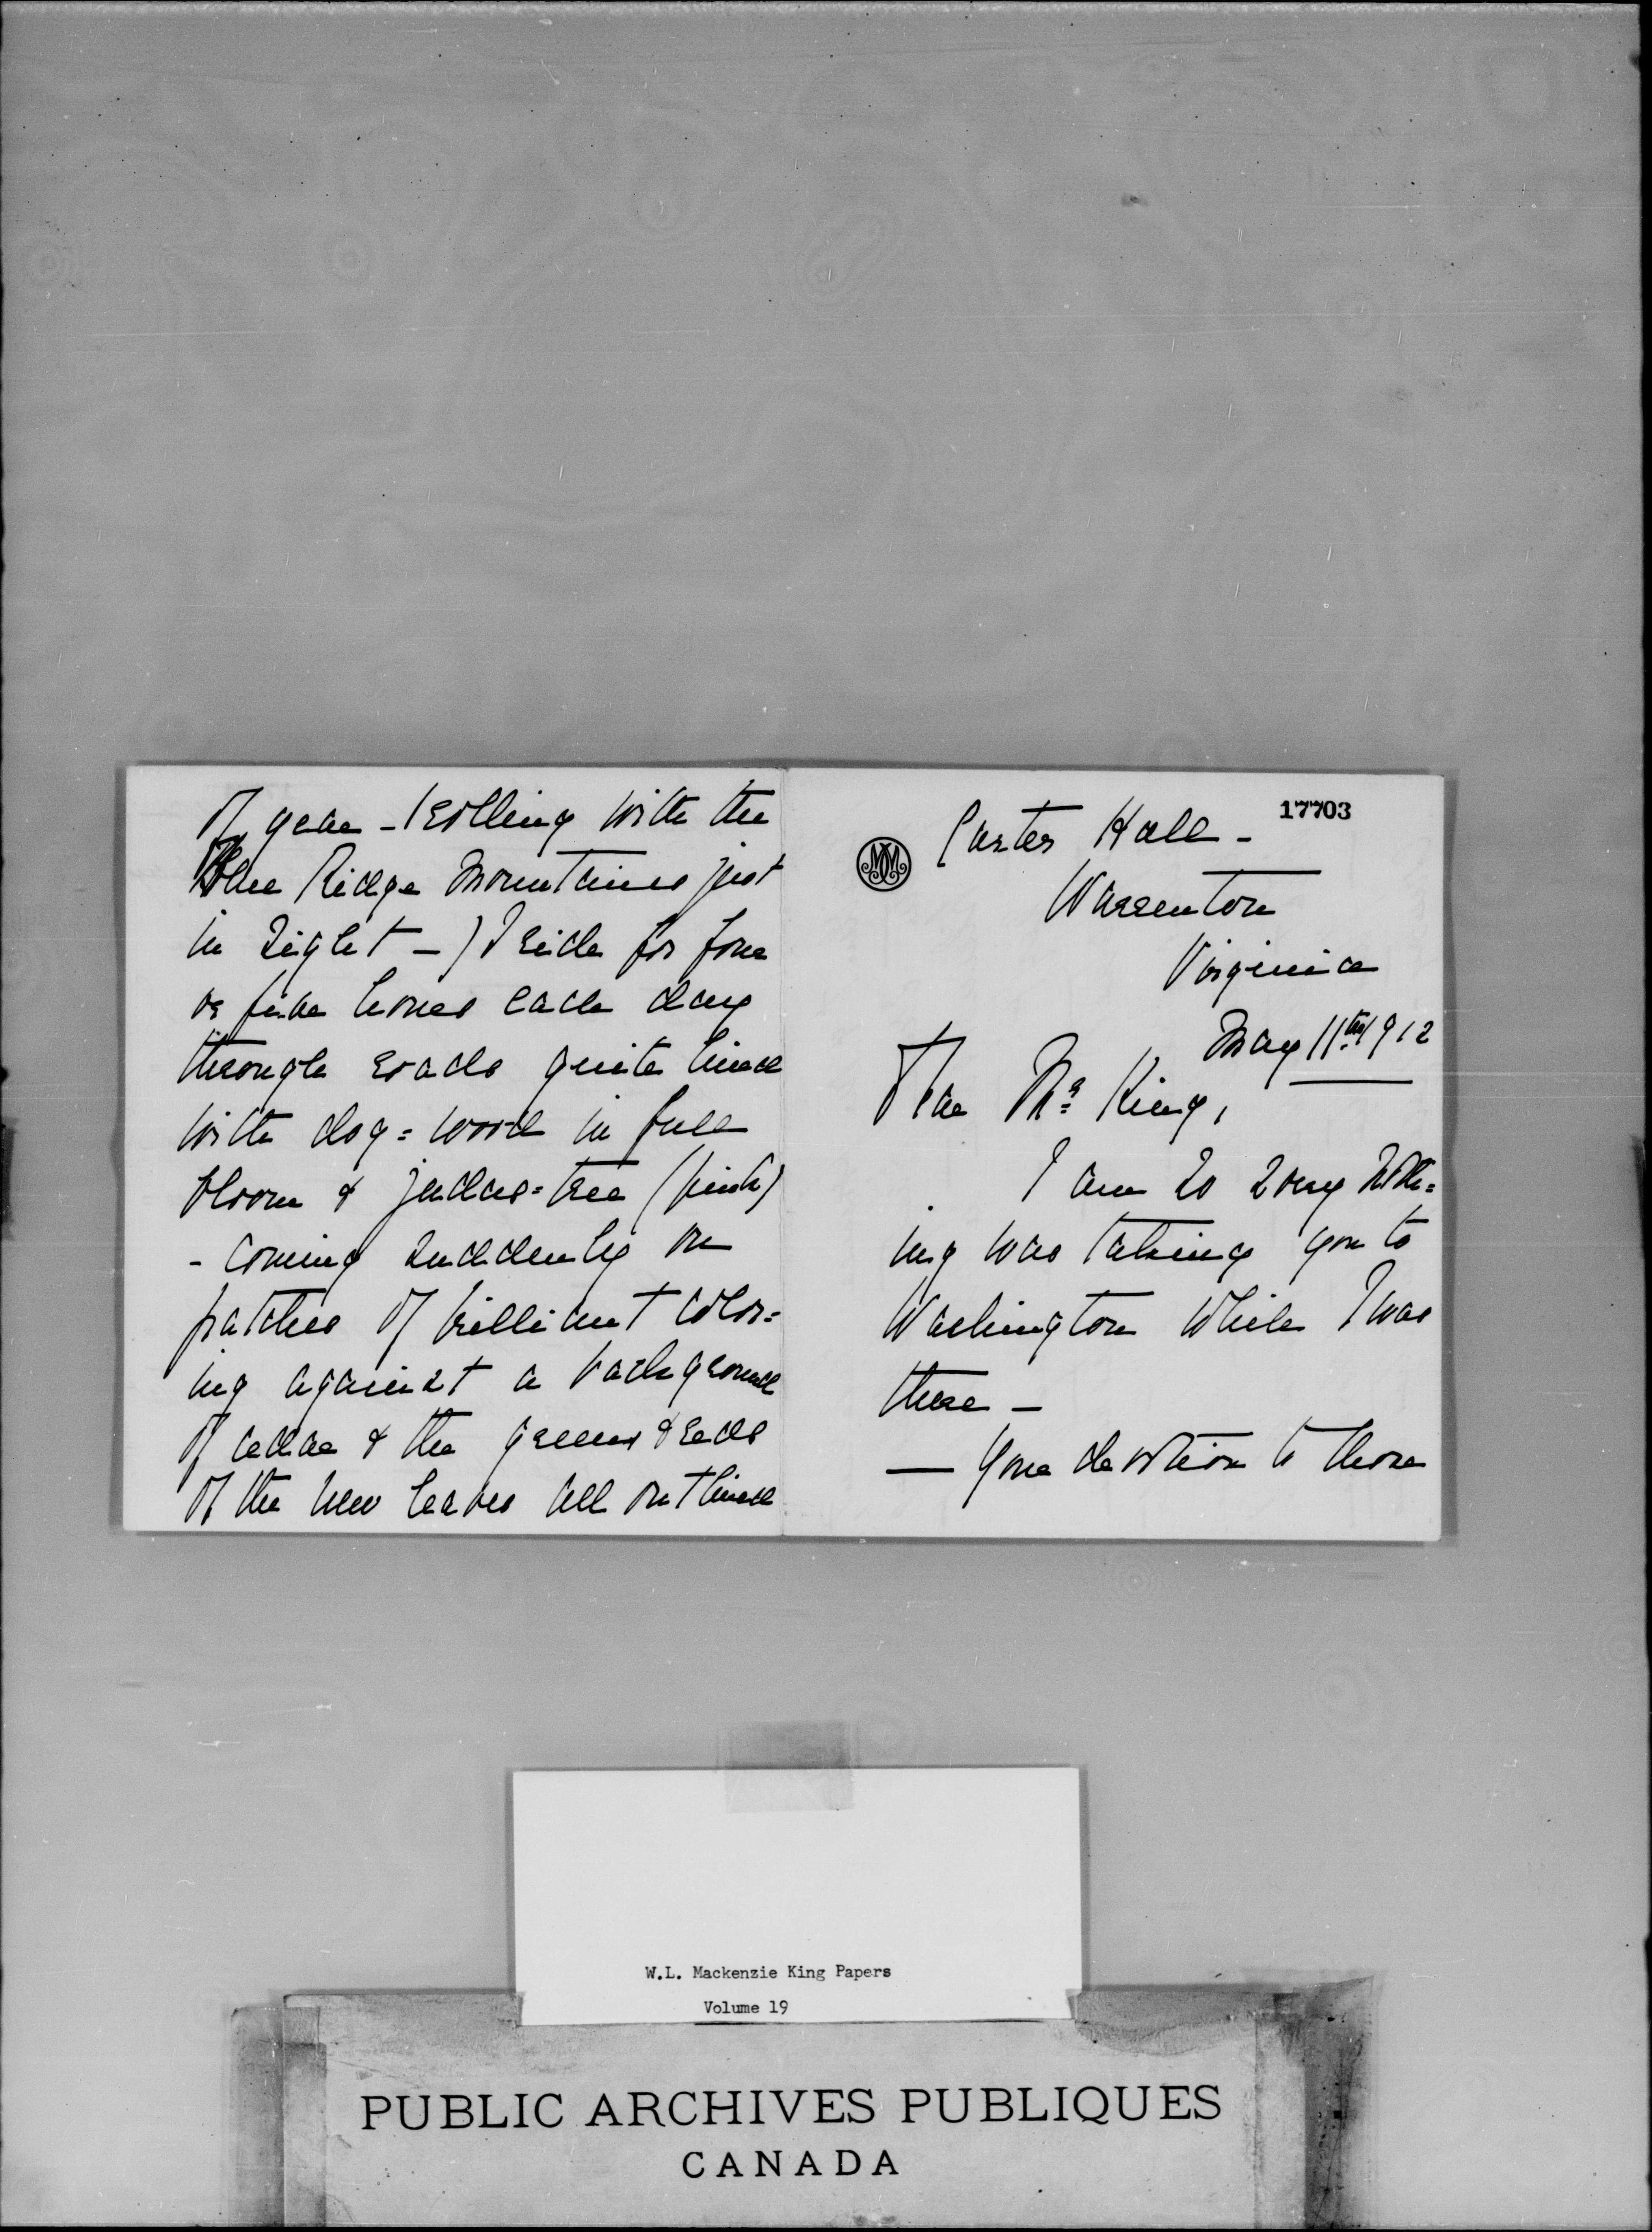 of year - (rolling with the
Blue Ridge Mountains just
in sight -) I ride for four
or five hours each day
through roads quite lined
with dog=wood in full
bloom & judas=tree (pink)
- coming suddenly on
patches of brilliant color=
ing against a background
of cedar & the greens & reds
of the new leaves all outlined
17703
Carter Hall -
Warrenton
Virginia
May 11th 1912
Dear Mr. King,
I am so sorry noth=
ing was taking you to
Washington while I was
there -
— Your devotion to
W.L. Mackenzie King Papers
Volume 19
PUBLIC ARCHIVES PUBLIQUES
CANADA